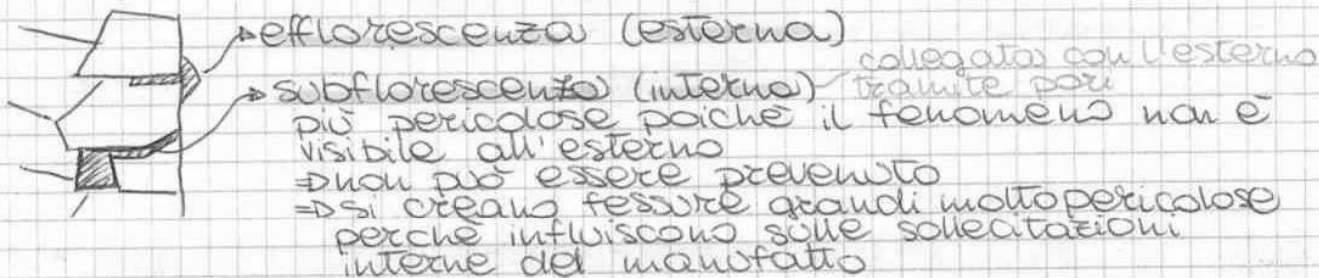 efflorescenza (esterna)
subflorescenza (interna) collegata con l'esterno
tramite pori
più pericolose poichè il fenomeno non è
visibile all'esterno
⇒ non può essere prevenuto
⇒ si creano fessure grandi molto pericolose
perchè influiscono sulle sollecitazioni
interne del manufatto